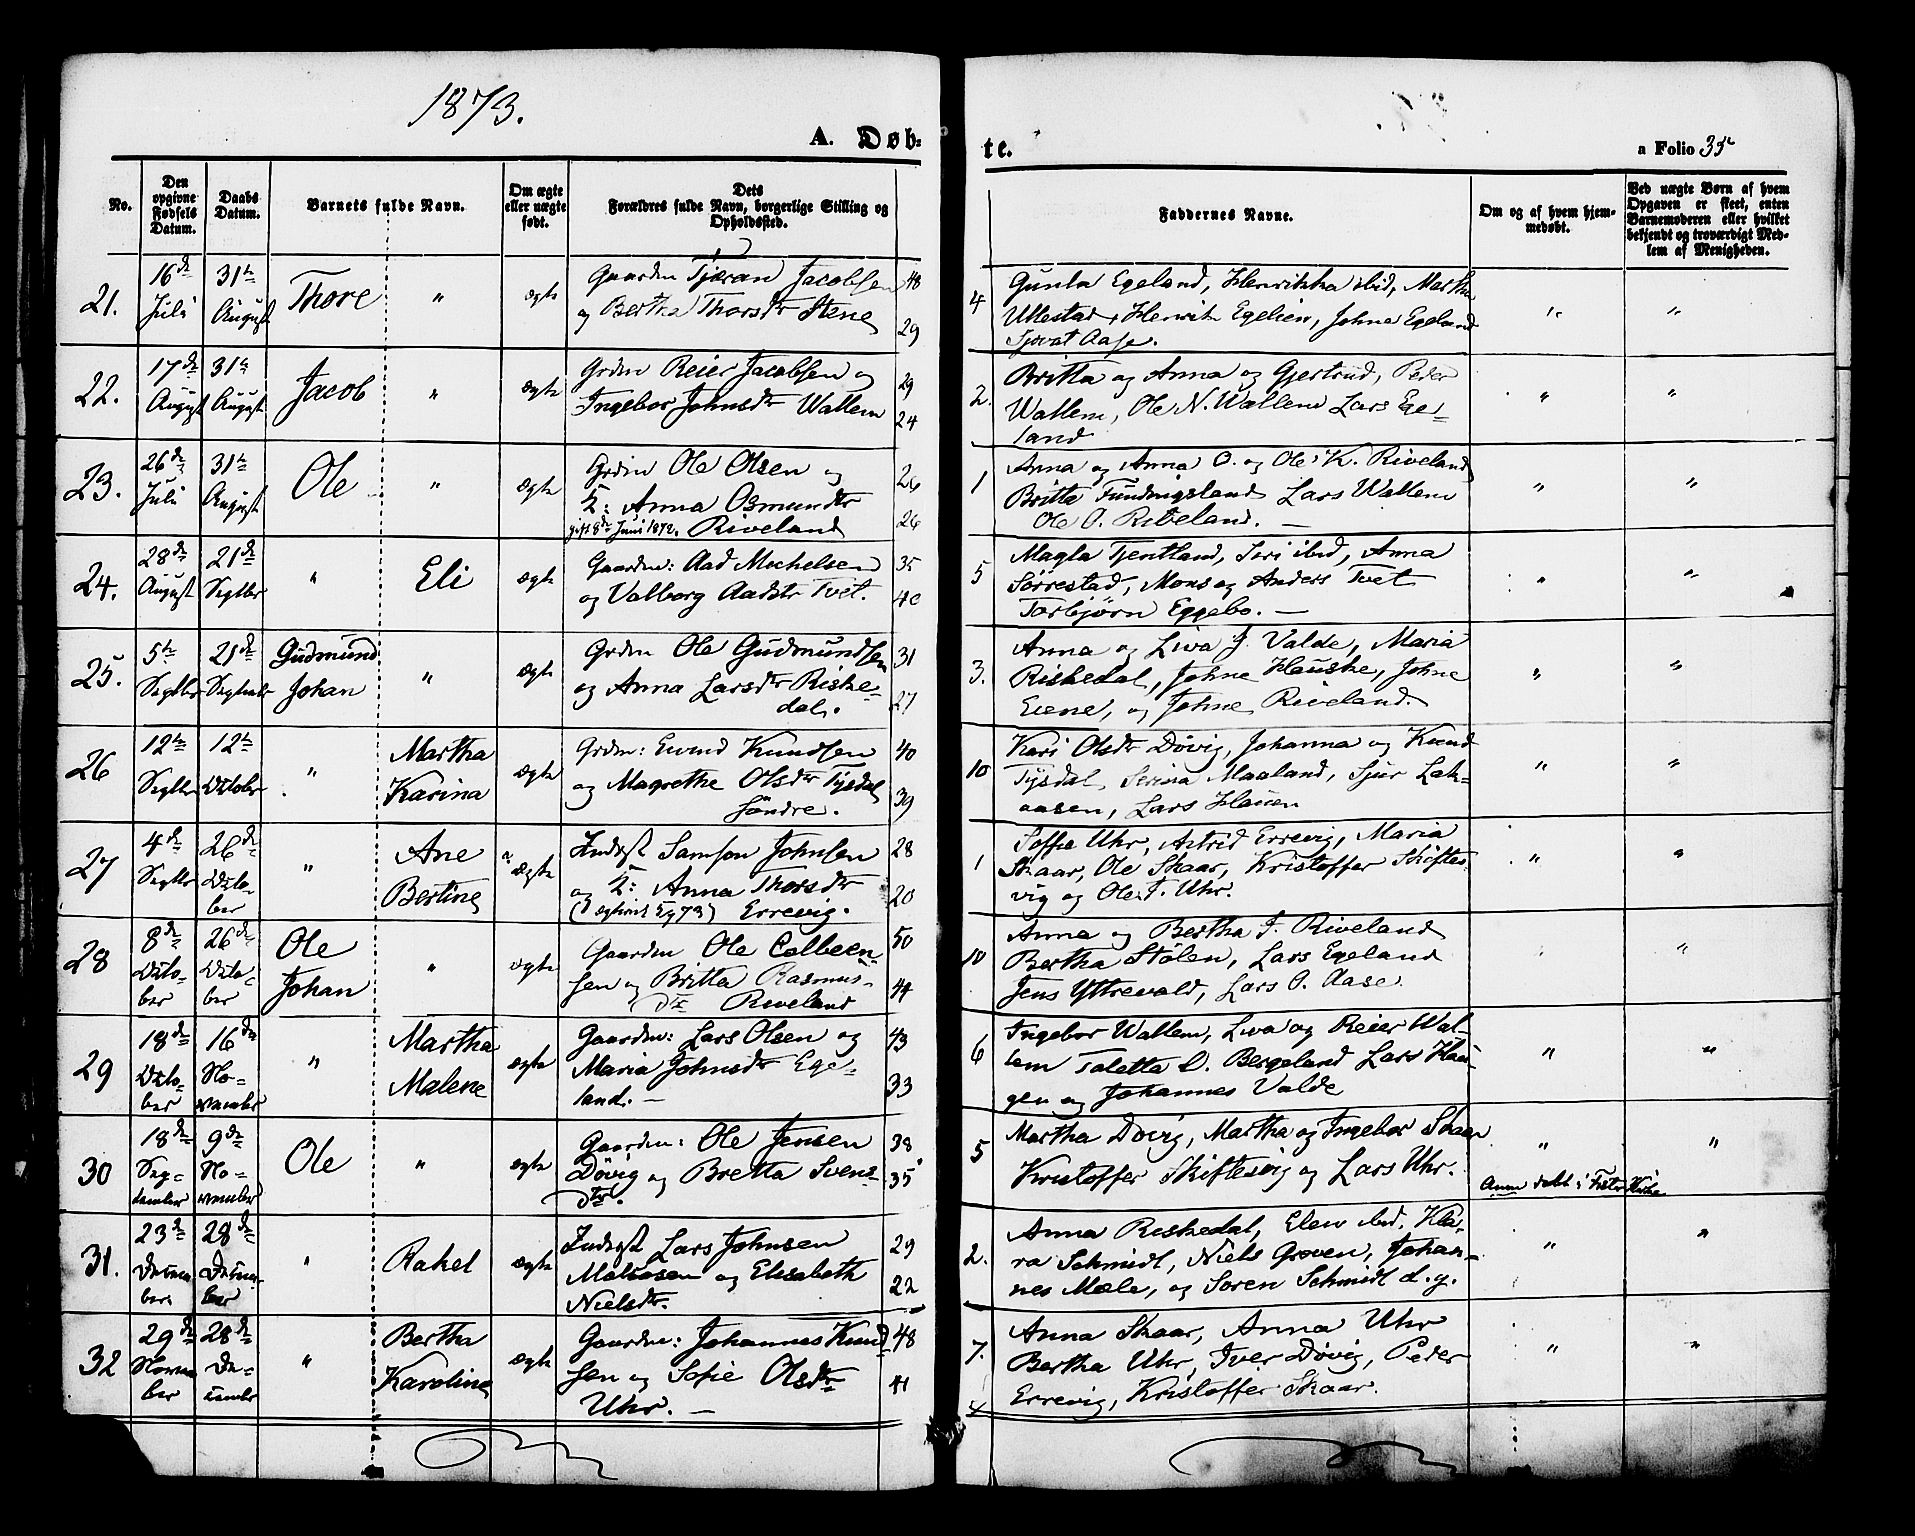 1873.
A. Døb-
te.
a Folio 35
No.
Den opgivne Fødsels Datum.
Daabs Datum.
Barnets fulde Navn.
Om ægte eller uægte født.
Dets Forældres fulde Navn, borgerlige Stilling og Opholdssted.
Faddernes Navne.
Om og af hvem hjemmedøbt.
Ved uægte Børn af hvem Opgaven er skeet, enten Barnemoderen eller hvilket bekjendt og troværdigt Medlem af Menigheden.
21. 16de Juli 31te August Thore " ægte
Gaardm Tjeran Jacobsen 48
og Bertha Thorsdtr Stene 29
4 Gunla Egeland, Henrikka ibid, Martha
Ullestad, Henrik Egeland, Johne Egeland
Tjovat Aase.
" "
22. 17de August 31te August Jacob " ægte
Grdm Reier Jacobsen og 29
Ingebor Johnsdtr Wallem 24
2. Britta og Anna og Gjertrud, Peder
Wallem, Ole N. Wallem Lars Ege-
land
" "
23. 26de Juli 31te August Ole " ægte
Grdm Ole Olsen og 26
K: Anna Osmundsdtr
gift 8de Juni 1872. Riveland 26
1 Anna og Anna O. og Ole K. Riveland
Britta Tundrigsland Lars Wallem
Ole O. Riveland. —
" "
24. 28de August 21de Septbr " Eli ægte
Gaardm: Aad Michelsen 35
og Valborg Aadsdtr Tvet. 40
5 Magla Tjentland, Siri ibid, Anna
Sørrestad, Mons og Anders Tvet
Torbjørn Eggebo. —
" "
25. 5te Septbr 21de Septembr Gudmund Johan " ægte
Grdm Ole Gudmundsen 31
og Anna Larsdtr Riske-
dal. 27
3. Anna og Liva J. Valde, Maria
Riskedal, Johne Hauske, Johne
Eiene, og Johne Riveland.
" "
26 12te Septbr 12te Octobr " Martha Karina ægte
Grdm: Eivind Knudsen 40
og Magrethe Olsdtr Tysdal
Søndre. 39
10 Kari Olsdtr Døvig, Johanna og Knud
Tysdal, Serina Maaland, Sjur Lak-
aasen, Lars Hauen
" "
27 4de Septbr 26de October " Ane Bertine ægte
Inderst Samson Johnsen 28
og K: Anna Thorsdtr 20
Errevig.
1 Soffie Uhr, Astrid Errevig, Maria
Skaar, Ole Skaar, Kristoffer Skiftes-
vig og Ole T. Uhr.
" "
28 8de October 26de October Ole Johan " ægte
Gaardm Ole Colbeen- 50
sen og Britta Rasmus-
dtr Riveland 44
10 Anna og Bertha J. Riveland
Bertha Stølen, Lars Egeland
Jens Yttrevald, Lars O. Aase.
"
29 18de October 16de November " Martha Malene ægte
Gaardm: Lars Olsen og 43
Maria Johnsdtr Ege-
land. — 33
6 Ingebor Wallem, Liva og Reier Wal-
lem Taletta D. Bergeland Lars Hau-
gen og Johannes Valde
" "
30 18de September 9de November Ole " ægte
Gaardm: Ole Jensen 38
Døvig og Bretta Svens-
dtr. 35
5 Martha Døvig, Martha og Ingebor Skaar
Kristoffer Skiftesvig og Lars Uhr.
" "
Anm døbt i Fister Kirke
31. 23de December 28de December " Rakel ægte
Inderst Lars Johnsen 29
Molaasen og Elisabeth 22
Nielsdtr.
2. Anna Riskedal, Elen ibid, Kla-
ra Schmidl, Niels Groven, Johan-
nes Mæle, og Soren Schmidl d.y.
" "
32 29de November 28de December " Bertha Karoline ægte
Gaardm: Johannes Knud- 48
sen og Sofie Olsdtr 41
Uhr. —
7. Anna Skaar, Anna Uhr
Bertha Uhr, Iver Døvig, Peder
Errevig, Kristoffer Skaar.
" "